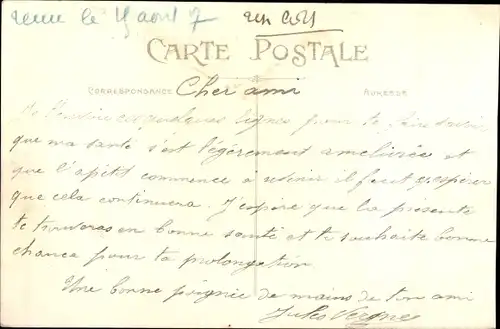 le août 7
CARTE POSTALE
CORRESPONDANCE Cher ami ADRESSE
quelques lignes pour te faire savoir
que ma santé s'est légèrement améliorée et
que l'apétit commence à revenir il faut espérer
que cela continuera. J'espère que la présente
te trouveras en bonne santé et te souhaite bonne
chance pour ta prolongation.
Une bonne poignée de mains de ton ami
Jules